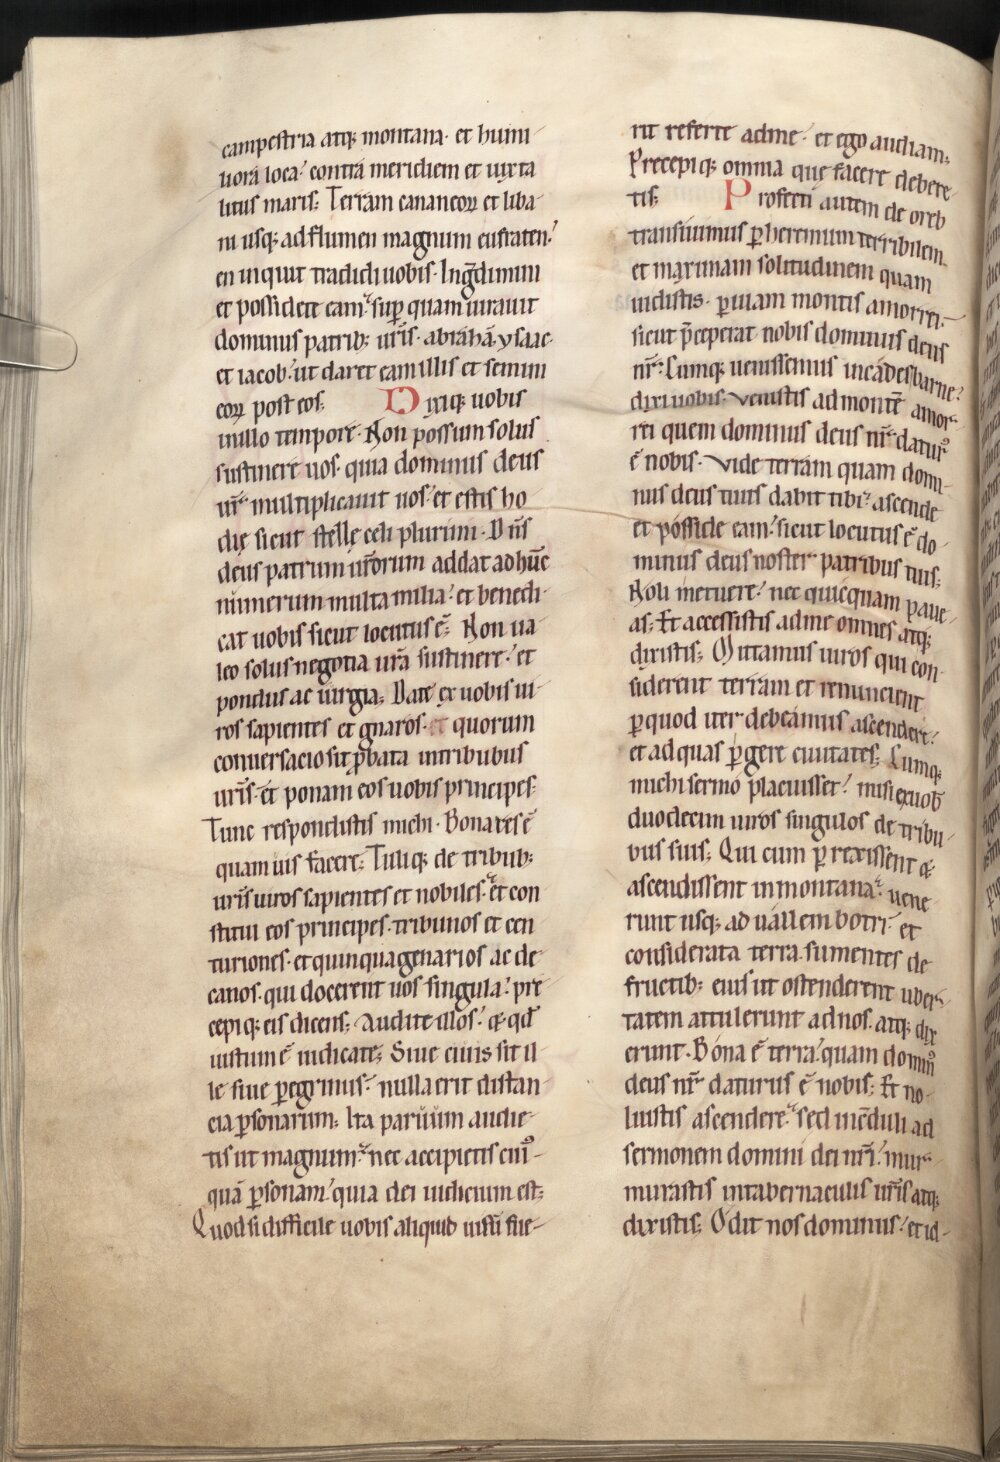 campestria atq; montana· et humi
liora loca· contra meridiem et iuxta
litus maris; Terram cananeoꝝ et liba
ni usq; ad flumen magnum eufraten·
en inquit tradidi uobis· Ingᷓdimini
et possidete eam· suꝑ quam iurauit
dominus patrib; ur̄is· abrahā· ysaac·
et iacob· ut daret eam illis et semini
eoꝝ post eos; Dixiq; uobis
in illo tempore· Non possum solus
sustinere uos· quia dominus deus
ur̄ multiplicauit uos· et estis ho
die sicut stelle celi plurimi· Dn̄s
deus patrum ur̄orum addat ad hunc
numerum multa milia· et benedi
cat uobis sicut locutus ē· Non ua
leo solus negotia ur̄a sustinere· et
pondus ac iurgia; Date ex uobis ui
ros sapientes et gnaros· et quorum
conuersacio sit ꝓbata in tribubus
ur̄is· et ponam eos uobis principes·
Tunc respondistis michi· Bona res ē
quam uis facere; Tuliq; de tribub;
ur̄is uiros sapientes et nobiles· et con
stitui eos principes· tribunos et cen
turiones· et quinquagenarios ac de
canos· qui docerent uos singula· pre
cepiq; eis dicens; Audite illos· ⁊ qd̄
iustum ē iudicate; Siue ciuis sit il
le siue ꝑegrinus· nulla erit distan
cia ꝑsonarum; Ita paruum audie
tis ut magnum· nec accipietis cuiꝰ
quā ꝑsonam· quia dei iudicium est;
Quod si difficile uobis aliquid uisū fue
rit referte ad me· et ego audiam;
Precepiq; omnia que facere debere
tis; Profecti autem de oreb
transiuimus ꝑ heremum terribilem
et maximam solitudinem quam
uidistis· ꝑ uiam montis amorrei·
sicut p̄ceperat nobis dominus deus
nr̄· Cumq; uenissemus in cadesbarne·
dixi uobis· Venistis ad montē amor
rei quem dominus deus nr̄ daturꝰ
ē nobis· Vide terram quam domi
nus deus tuus dabit tibi· ascende
et posside eam· sicut locutus ē do
minus deus noster patribus tuis;
Noli metuere· nec quicquam paue
as; Et accessistis ad me omnes atq;
dixistis; Mittamus uiros qui con
siderent terram et renuncient
ꝑ quod iter debeamus ascendere·
et ad quas ꝑgere ciuitates; Cumq;
michi sermo placuisset· misi ex uob̄
duodecim uiros singulos de tribu
bus suis; Qui cum ꝑrexissent ⁊
ascendissent in montana· uene
runt usq; ad uallem botri· et
considerata terra· sumentes de
fructib; eius ut ostenderent uber
tatem attulerunt ad nos· atq; dix
erunt· Bona ē terra· quam dominꝰ
deus nr̄ daturus ē nobis; Et no
luistis ascendere· sed incᷓduli ad
sermonem domini dei nr̄i· mur
murastis in tabernaculis ur̄is atq;
dixistis; Odit nos dominus· et id